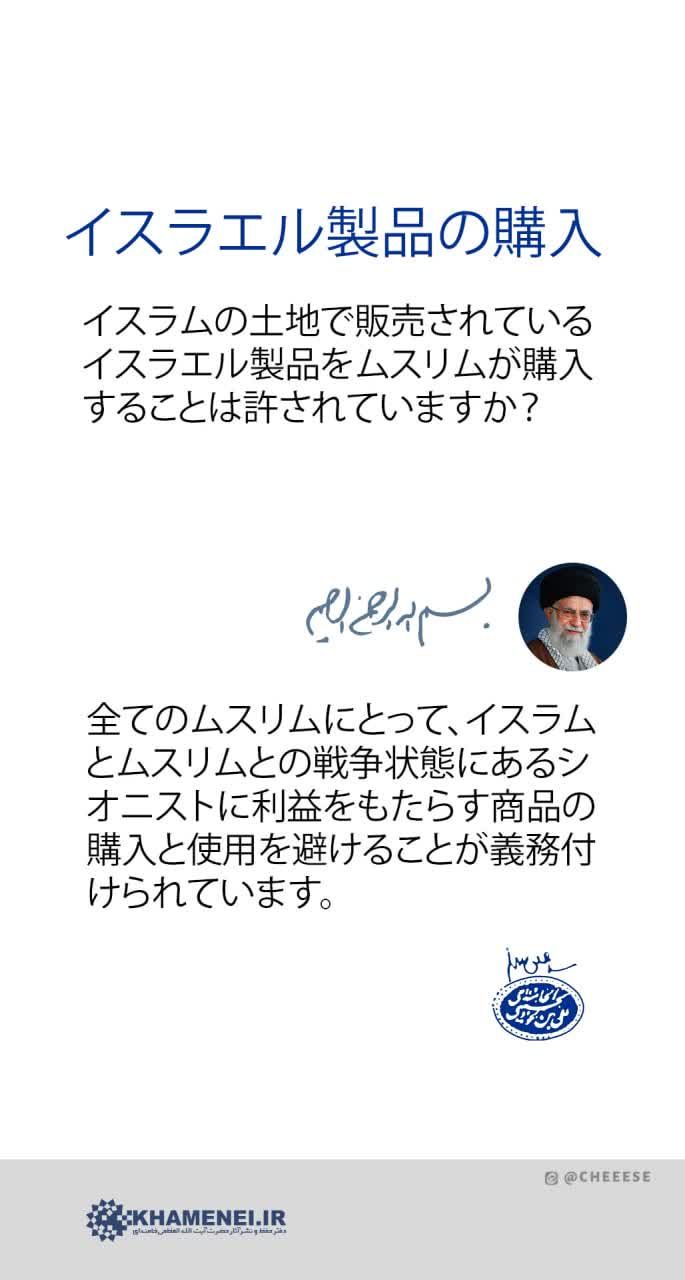 イスラエル製品の購入
イスラムの土地で販売されている
イスラエル製品をムスリムが購入
することは許されていますか？
بسم الله الرحمن الرحیم
全てのムスリムにとって、イスラム
とムスリムとの戦争状態にあるシ
オニストに利益をもたらす商品の
購入と使用を避けることが義務付
けられています。
@CHEEESE
KHAMENEI.IR
دفتر حفظ و نشر آثار حضرت آیت الله العظمی خامنه‌ای